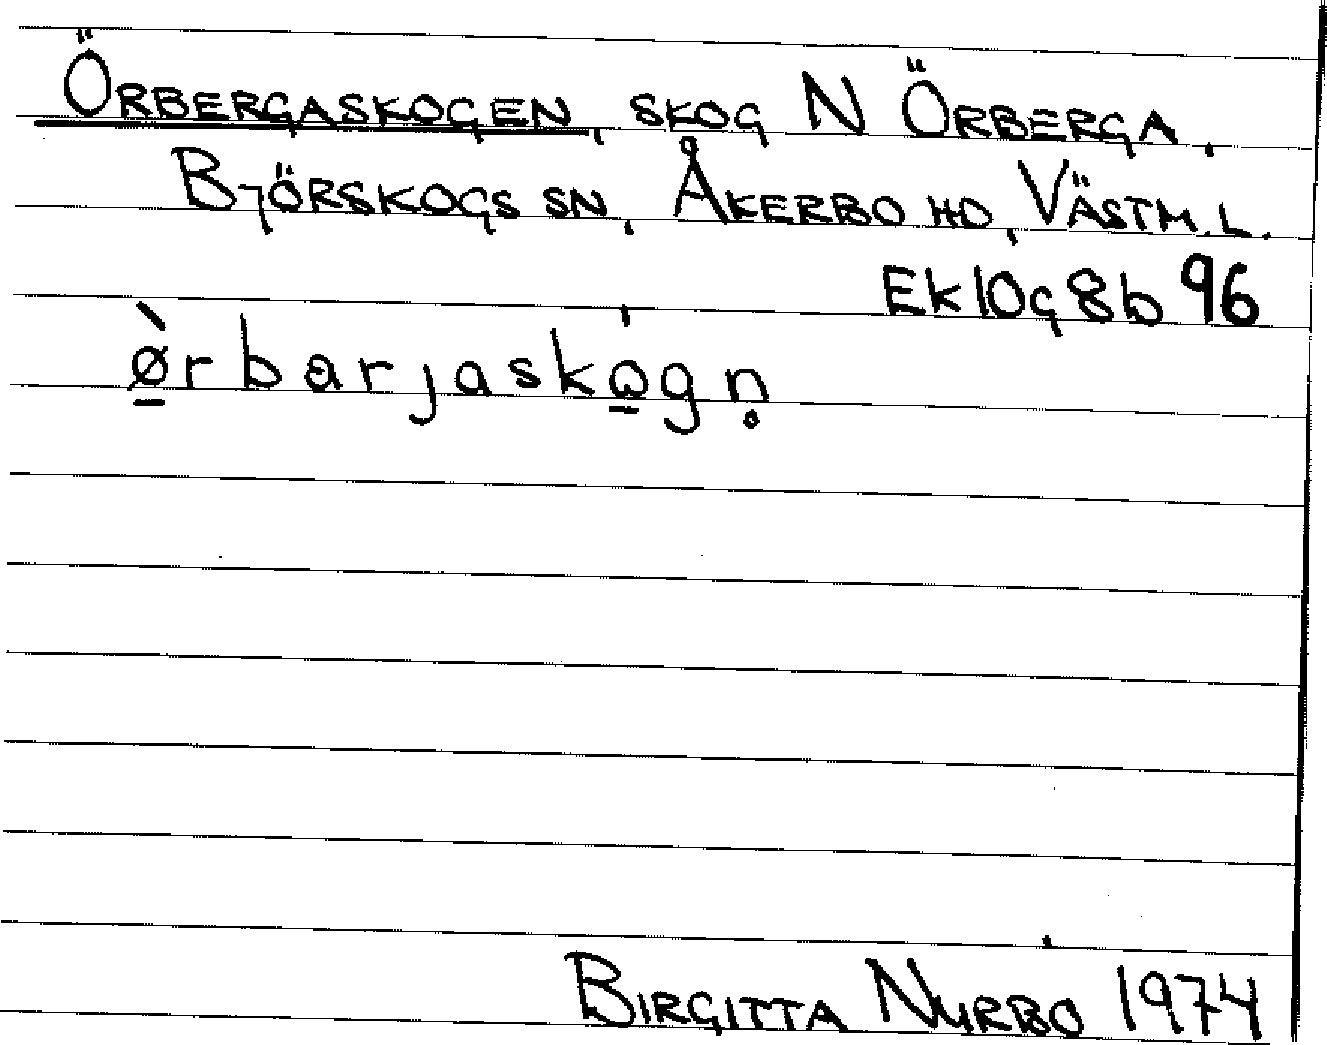 Örbergaskogen, skog N Örberga,
Björskogs sn, Åkerbo hd, Västm. l.
Ek 10g8b 96
ø̱̀rbarjaskò̱gn̥
Birgitta Nyrbo 1974